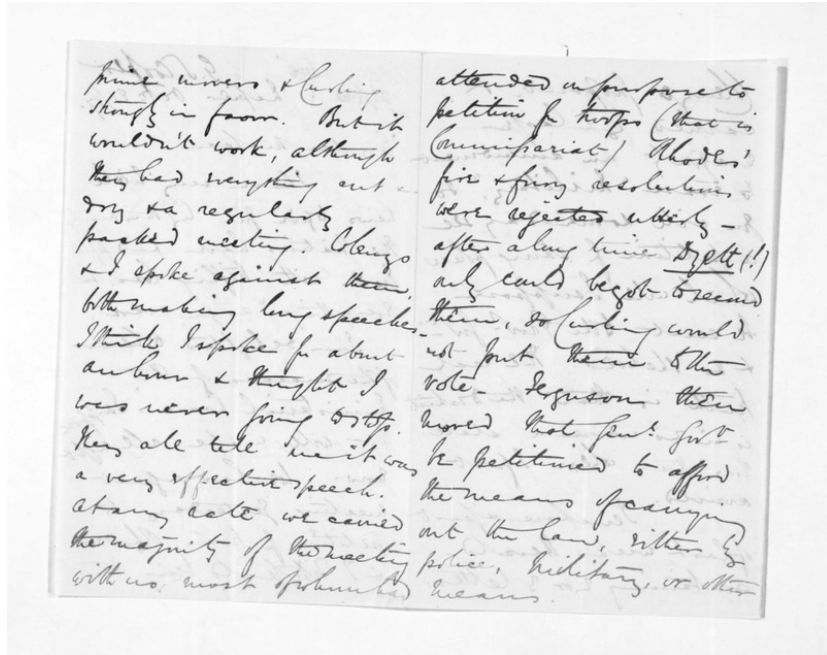 prime movers & Curling
strongly in favor. But it
wouldn't work, although
they had everything cut &
dry & a regularly
packed meeting. Colenso
& I spoke against them,
both making long speeches.
I think I spoke for about
an hour & thought I
was never going to stop.
They all tell me it was
a very effective speech.
at any rate we carried
the majority of the meeting
with us, most of whom had
attended on purpose to
petition for troops (that is
Commissariat) Rhodes'
fire & fury resolutions
were rejected utterly –
after a long time Dyett (!)
only could be got to second
them, so Curling would
not put them to the
vote – Ferguson then
moved that Genl. Govt
be petitioned to afford
the means of carrying
out the law, either by
police, military, or other
means.